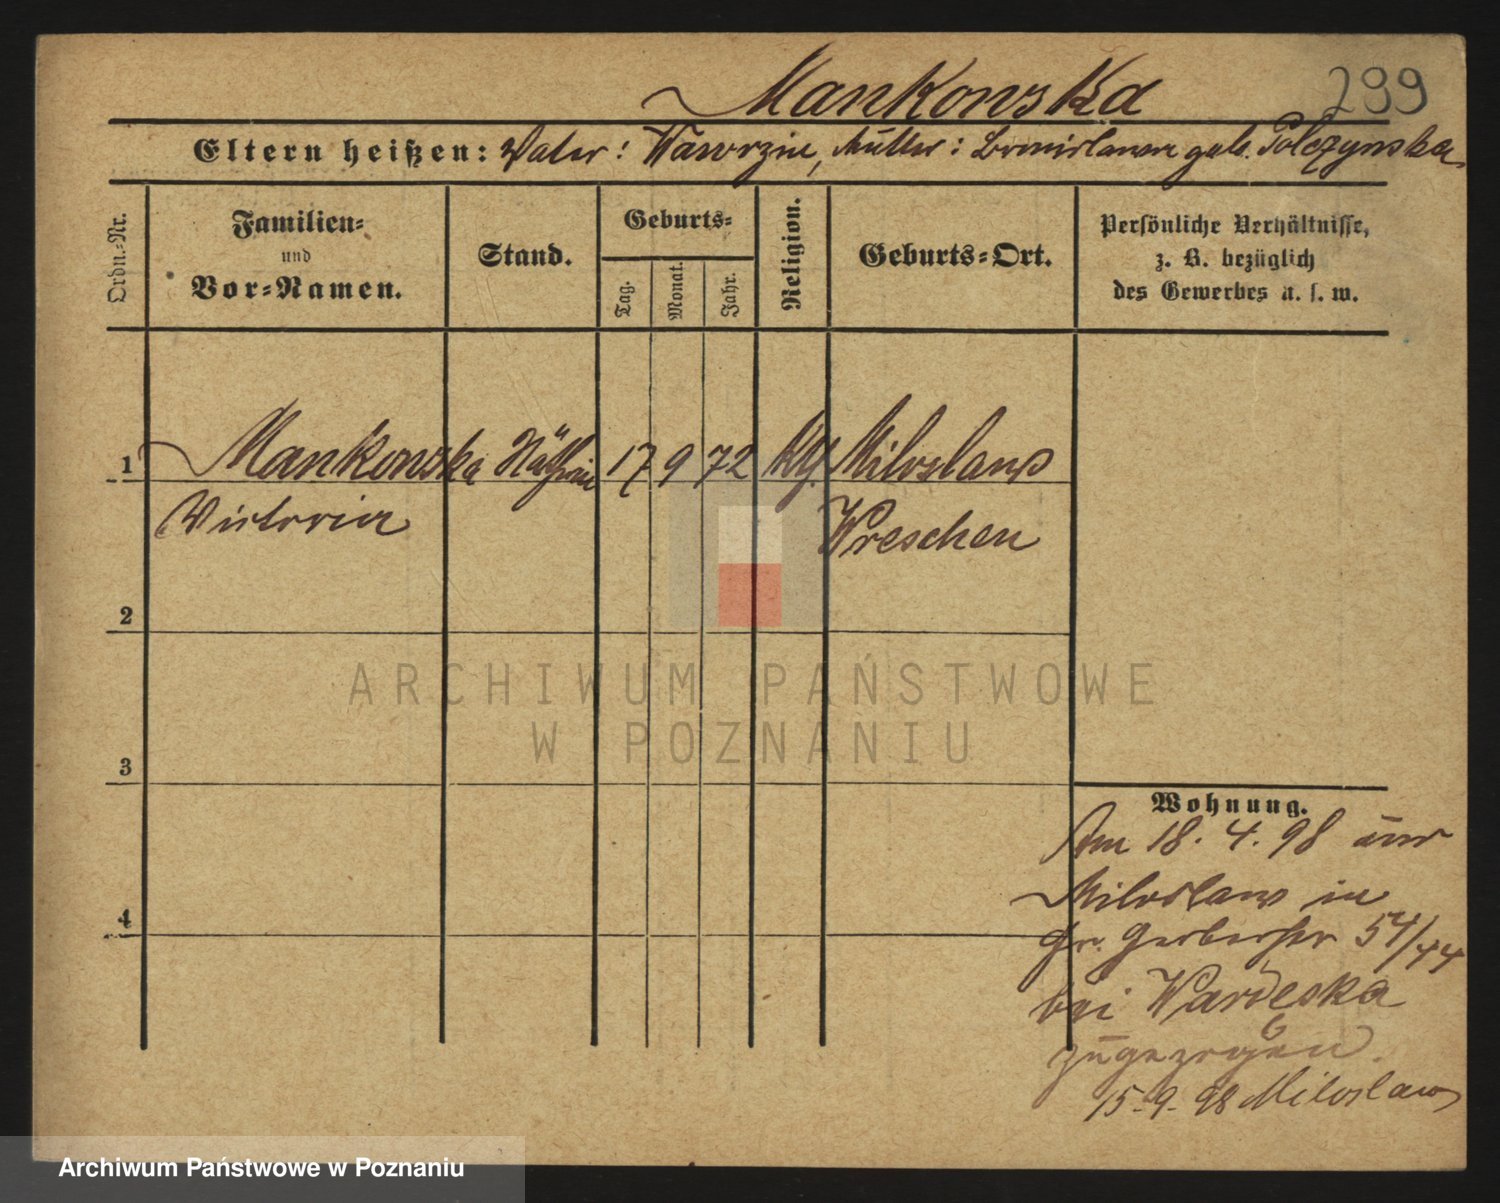 Mankowska
299
Eltern heißen: Vater: Wawrzin, Mutter: Bronislawa geb. Polczynska
Ordn.-Nr.
Familien-
und
Vor-Namen.
Stand.
Geburts-
Tag.
Monat.
Jahr.
Religion.
Geburts-Ort.
Persönliche Verhältnisse,
z. B. bezüglich
des Gewerbes u. s. w.
1 Mankowska Näherin 17 9 72 Miloslaw
Victoria Wreschen
2
ARCHIWUM PAŃSTWOWE
W POZNANIU
3
Wohnung.
Am 18. 4. 98 aus
Miloslaw in
4
Gr. Gerberstr 54/44
bei Wardeska
zugezogen.
15-9-98 Miloslaw
Archiwum Państwowe w Poznaniu